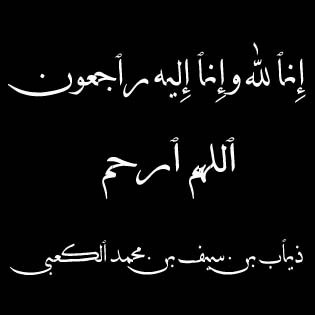 إنا لله وإنا إليه راجعون
اللهم ارحم
ذياب بن سيف بن محمد الكعبي